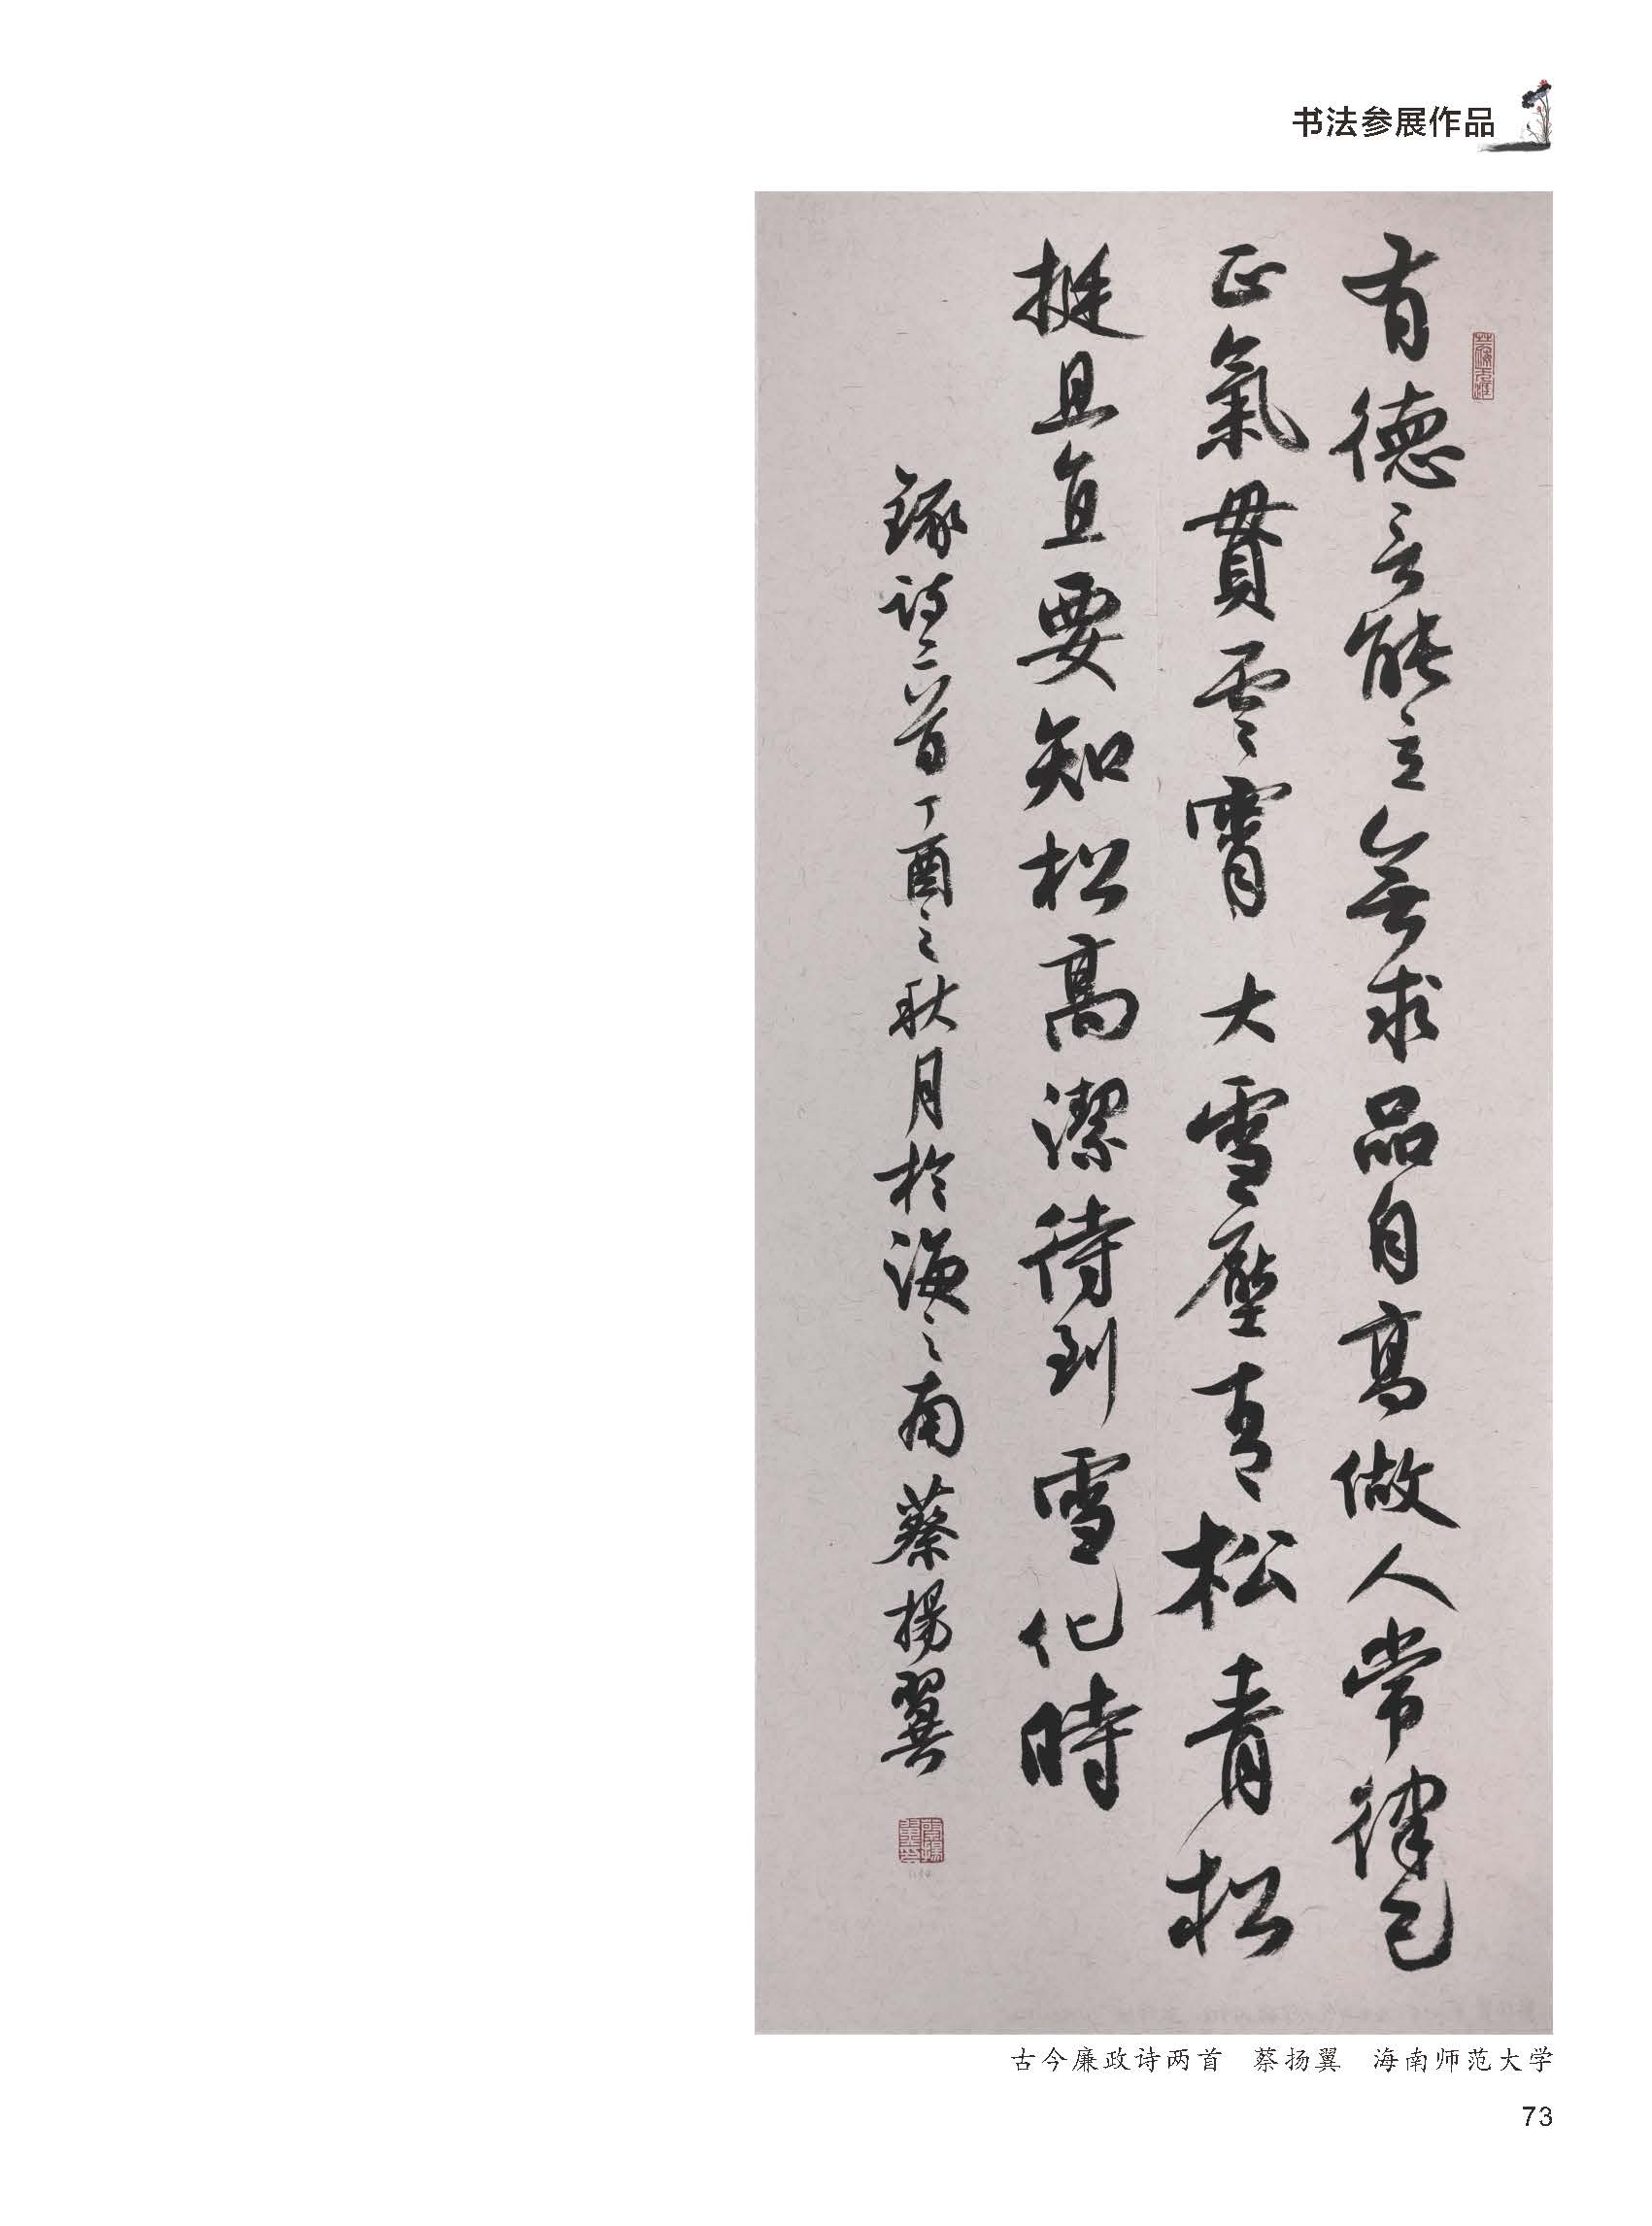 书法参展作品
有德言能立無求品自高做人常律己
正氣貫雲霄大雪壓青松青松
挺且直要知松高潔待到雪化時
錄詩二首丁酉之秋月於海之南蔡揚翼
古今廉政诗两首 蔡扬翼 海南师范大学
73